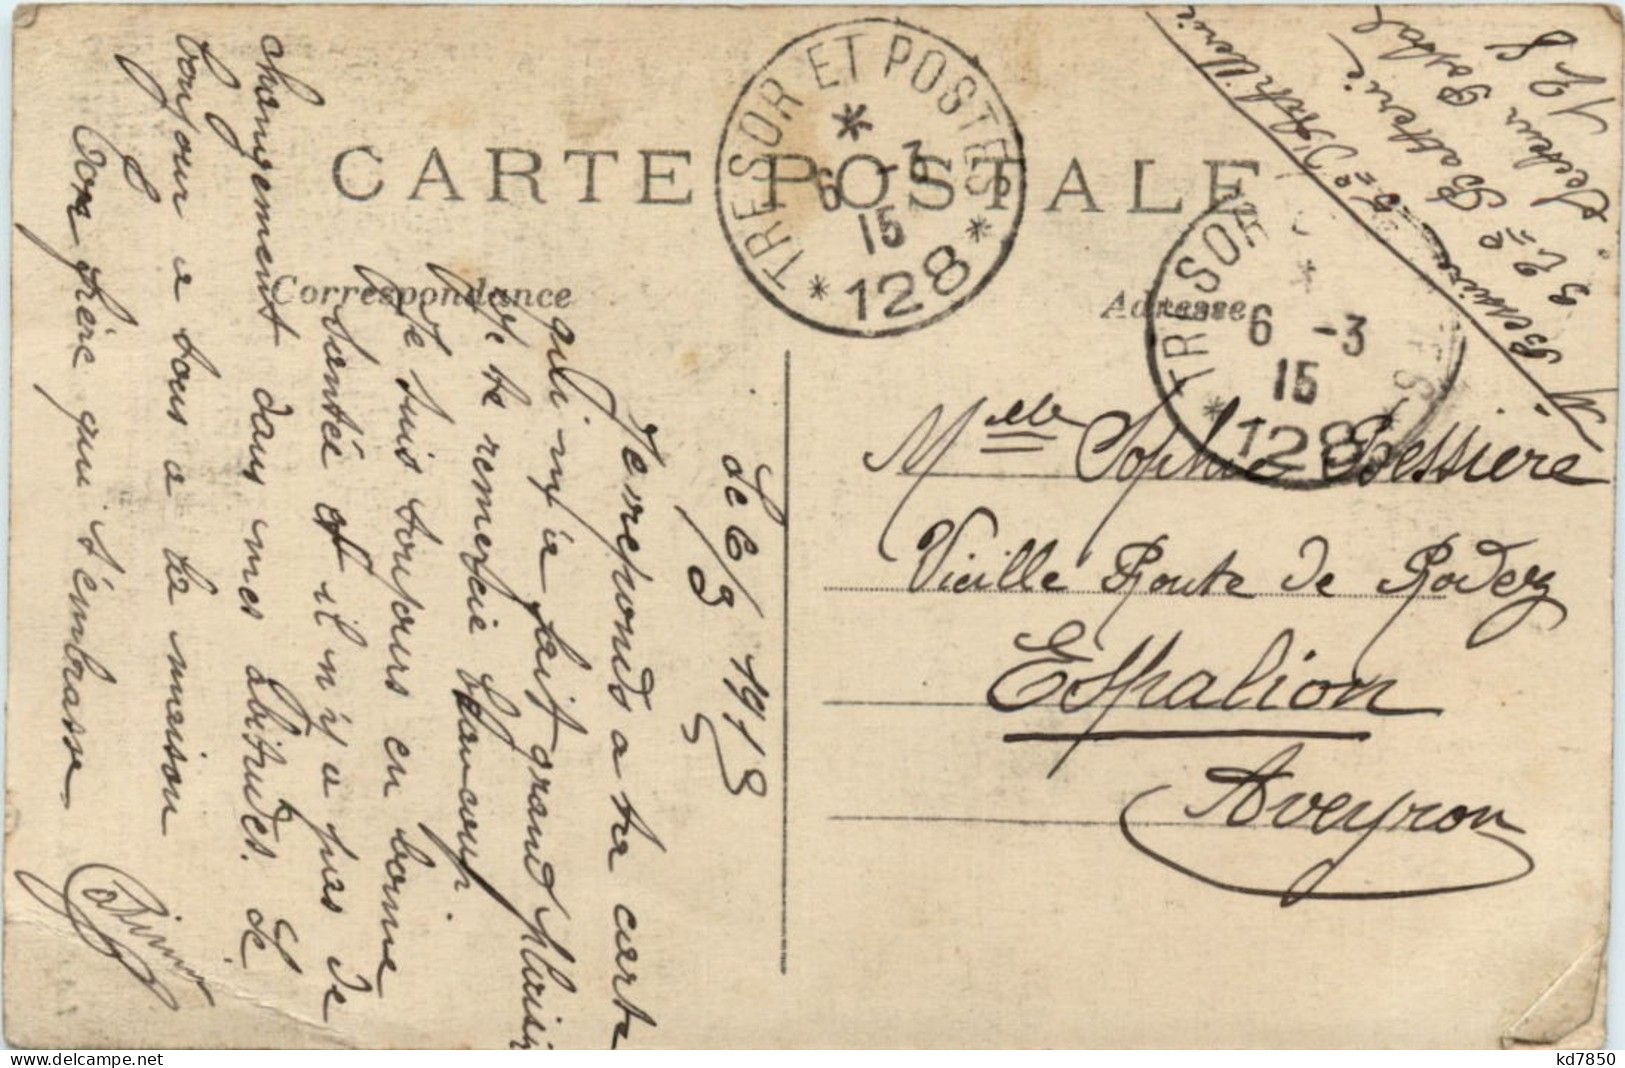 CARTE POSTALE
Correspondance
Adresse
TRESOR ET POSTES
6 -3
15
* 128 *
TRESOR
6 -3
15
* 128
Bessière
d'Artillerie
Batterie
Secteur Postal
128
Melle Sophie Bessière
Vieille Route de Rodez
Espalion
Aveyron
Le 6/3 1915
Je rreponds a ta carte
qui m'a fait grand plaisir
Je te remercie beaucoup.
Je suis toujours en bonne
santée et il n'y a pas de
changement dans mes abitudes. Le
bonjour a tous a la maison
Ton frère qui t'embrasse
kd7850